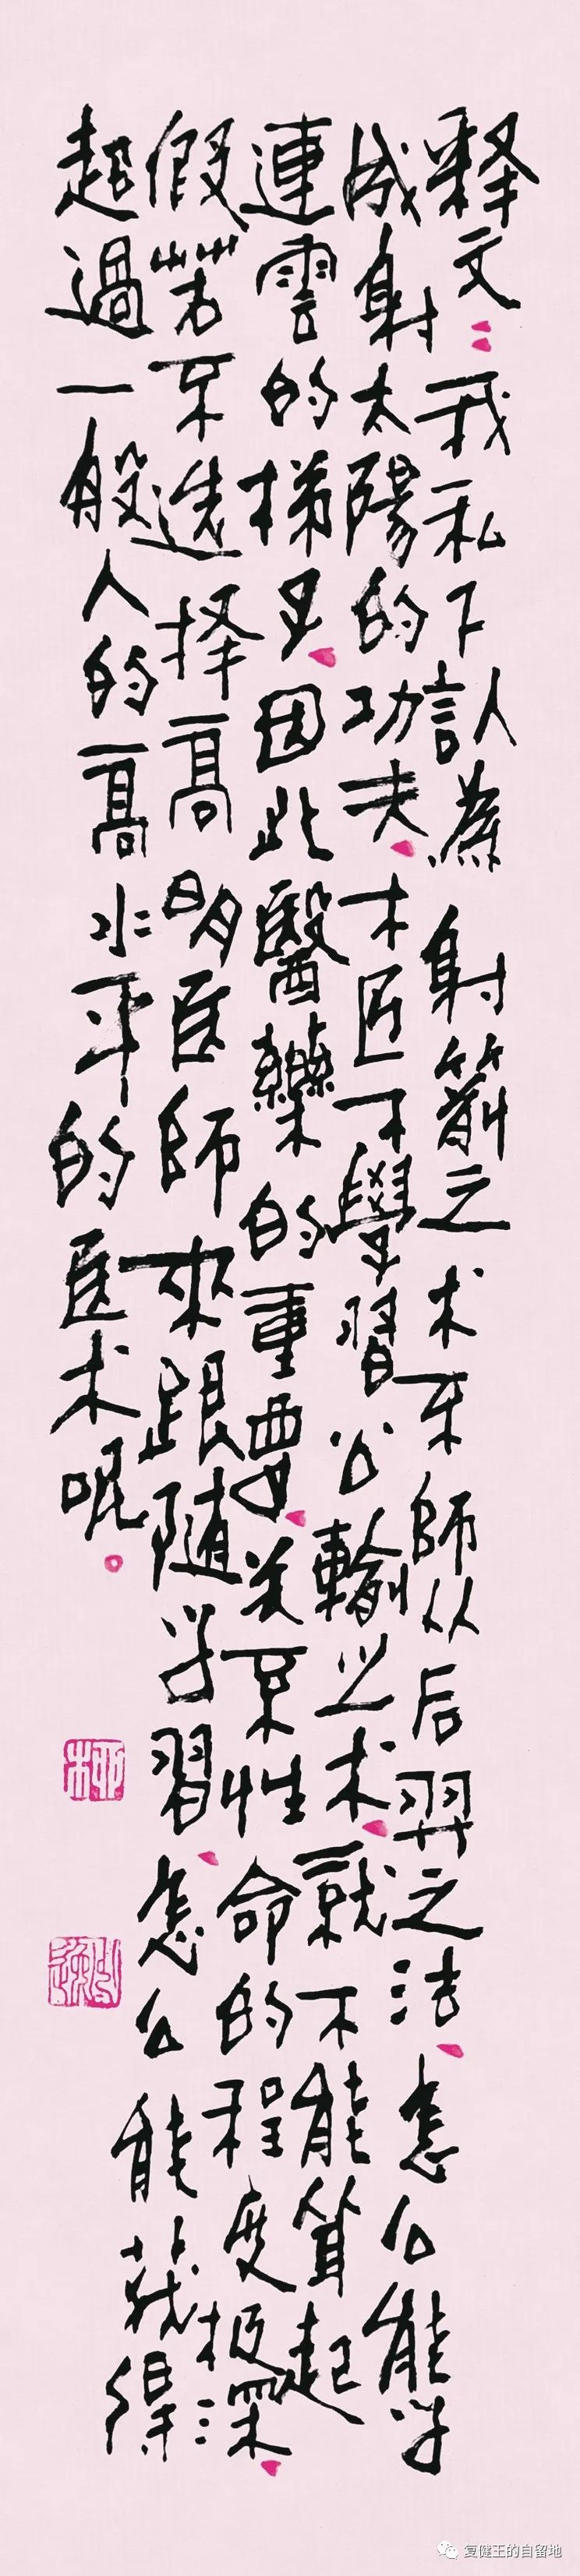 释文：我私下認為射箭之术不師从后羿之法，怎么能学
成射太陽的功夫，木匠不學習公輸之术，就不能算起
連雲的梯子，因此醫藥的重要，关系性命的程度极深，
假若不选择高明医師來跟随学習，怎么能获得
超過一般人的高水平的医术呢。
复健王的自留地